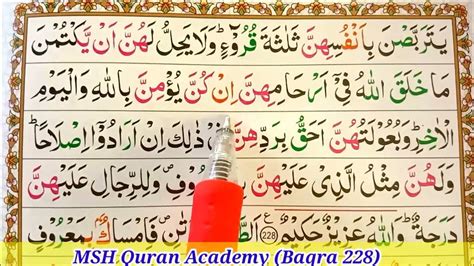 يَتَرَبَّصْنَ بِاَنْفُسِهِنَّ ثَلٰثَةَ قُرُوْٓءٍؕ وَلَا يَحِلُّ لَهُنَّ اَنْ يَّكْتُمْنَ
مَا خَلَقَ اللّٰهُ فِىْٓ اَرْحَامِهِنَّ اِنْ كُنَّ يُؤْمِنَّ بِاللّٰهِ وَالْيَوْمِ
الْاٰخِرِؕ وَبُعُوْلَتُهُنَّ اَحَقُّ بِرَدِّهِنَّ ذٰلِكَ اِنْ اَرَادُوْٓا اِصْلَاحًاؕ
وَلَهُنَّ مِثْلُ الَّذِىْ عَلَيْهِنَّ وَلِلرِّجَالِ عَلَيْهِنَّ
دَرَجَةٌؕ وَاللّٰهُ عَزِيْزٌ حَكِيْمٌ (228) فَاِمْسَاكٌۢ بِمَعْرُوْفٍ
MSH Quran Academy (Baqra 228)